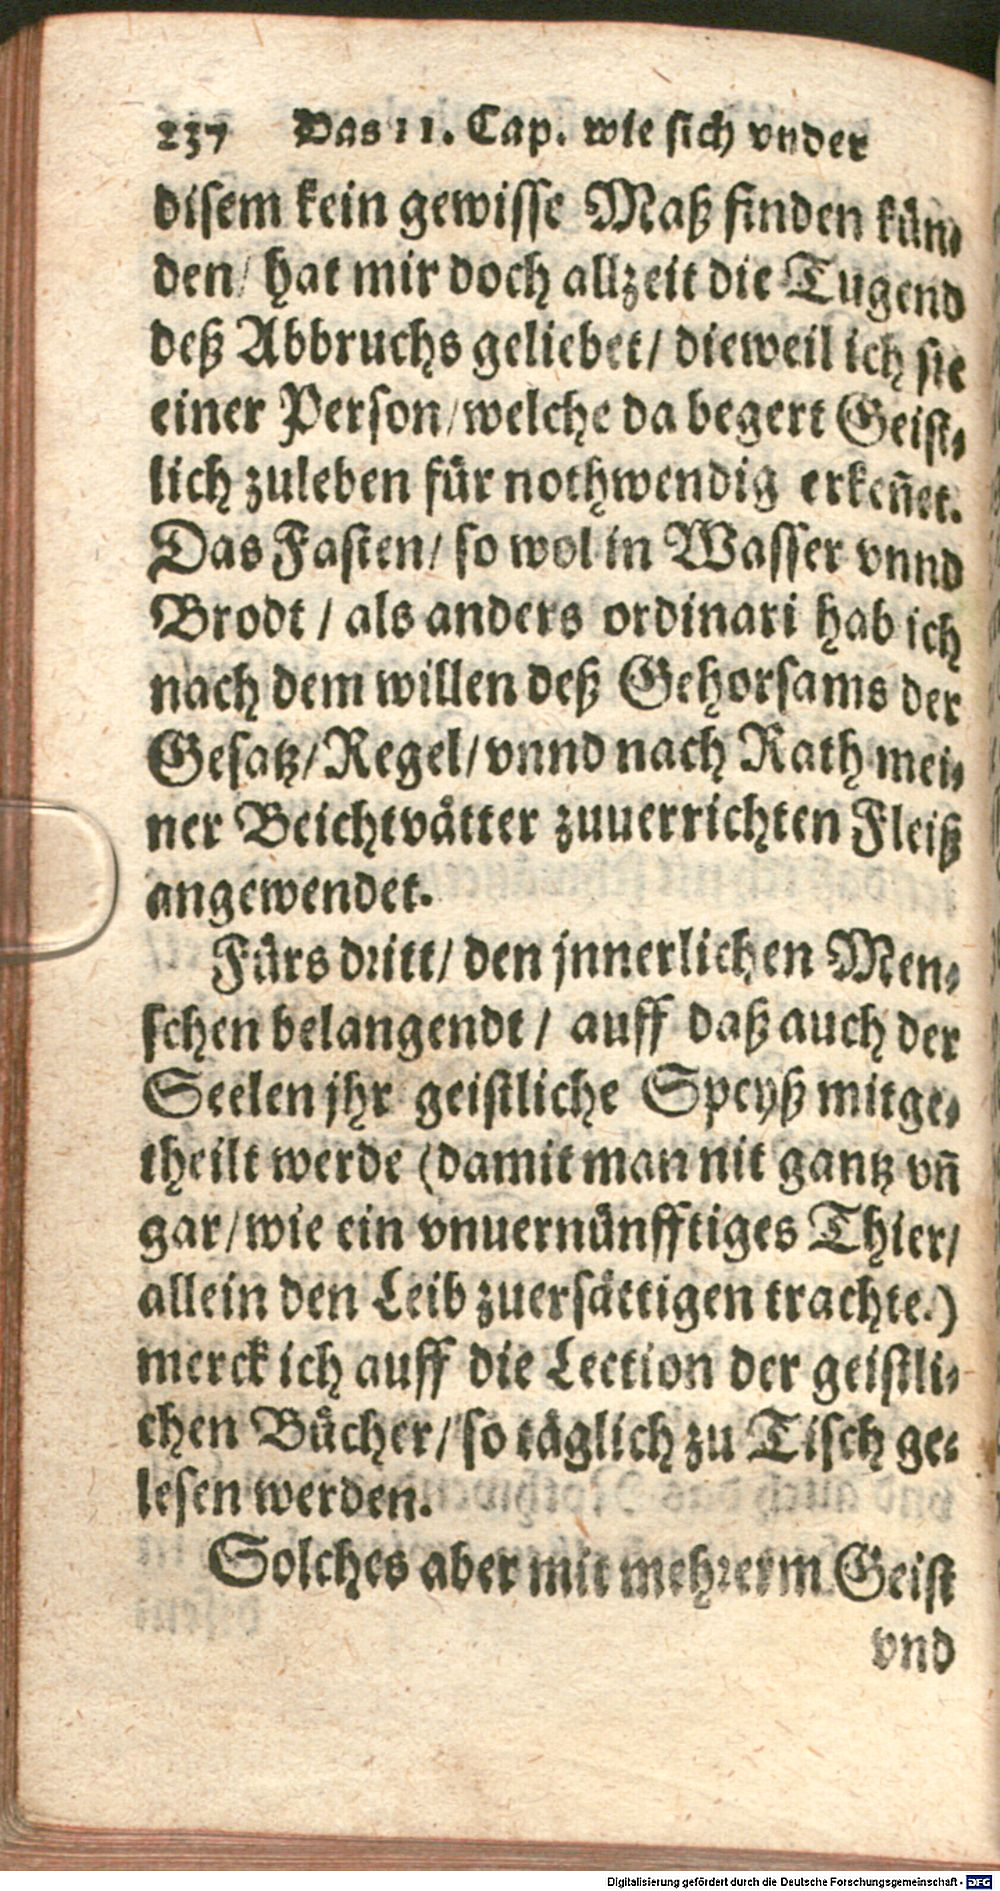 237 Das 11. Cap. wie sich vnder
disem kein gewisse Maß finden kün-
den/ hat mir doch allzeit die Tugend
deß Abbruchs geliebet/ dieweil ich sie
einer Person/ welche da begert Geist-
lich zuleben für nothwendig erkeñet.
Das Fasten/ so wol in Wasser vnnd
Brodt / als anders ordinari hab ich
nach dem willen deß Gehorsams der
Gesatz/ Regel/ vnnd nach Rath mei-
ner Beichtvätter zuuerrichten Fleiß
angewendet.
Fürs dritt/ den jnnerlichen Men-
schen belangendt / auff daß auch der
Seelen jhr geistliche Speyß mitge-
theilt werde (damit man nit gantz vñ
gar/ wie ein vnuernünfftiges Thier/
allein den Leib zuersättigen trachte.)
merck ich auff die Lection der geistli-
chen Bücher/ so täglich zu Tisch ge-
lesen werden.
Solches aber mit mehrerm Geist
vnd
Digitalisierung gefördert durch die Deutsche Forschungsgemeinschaft - DFG